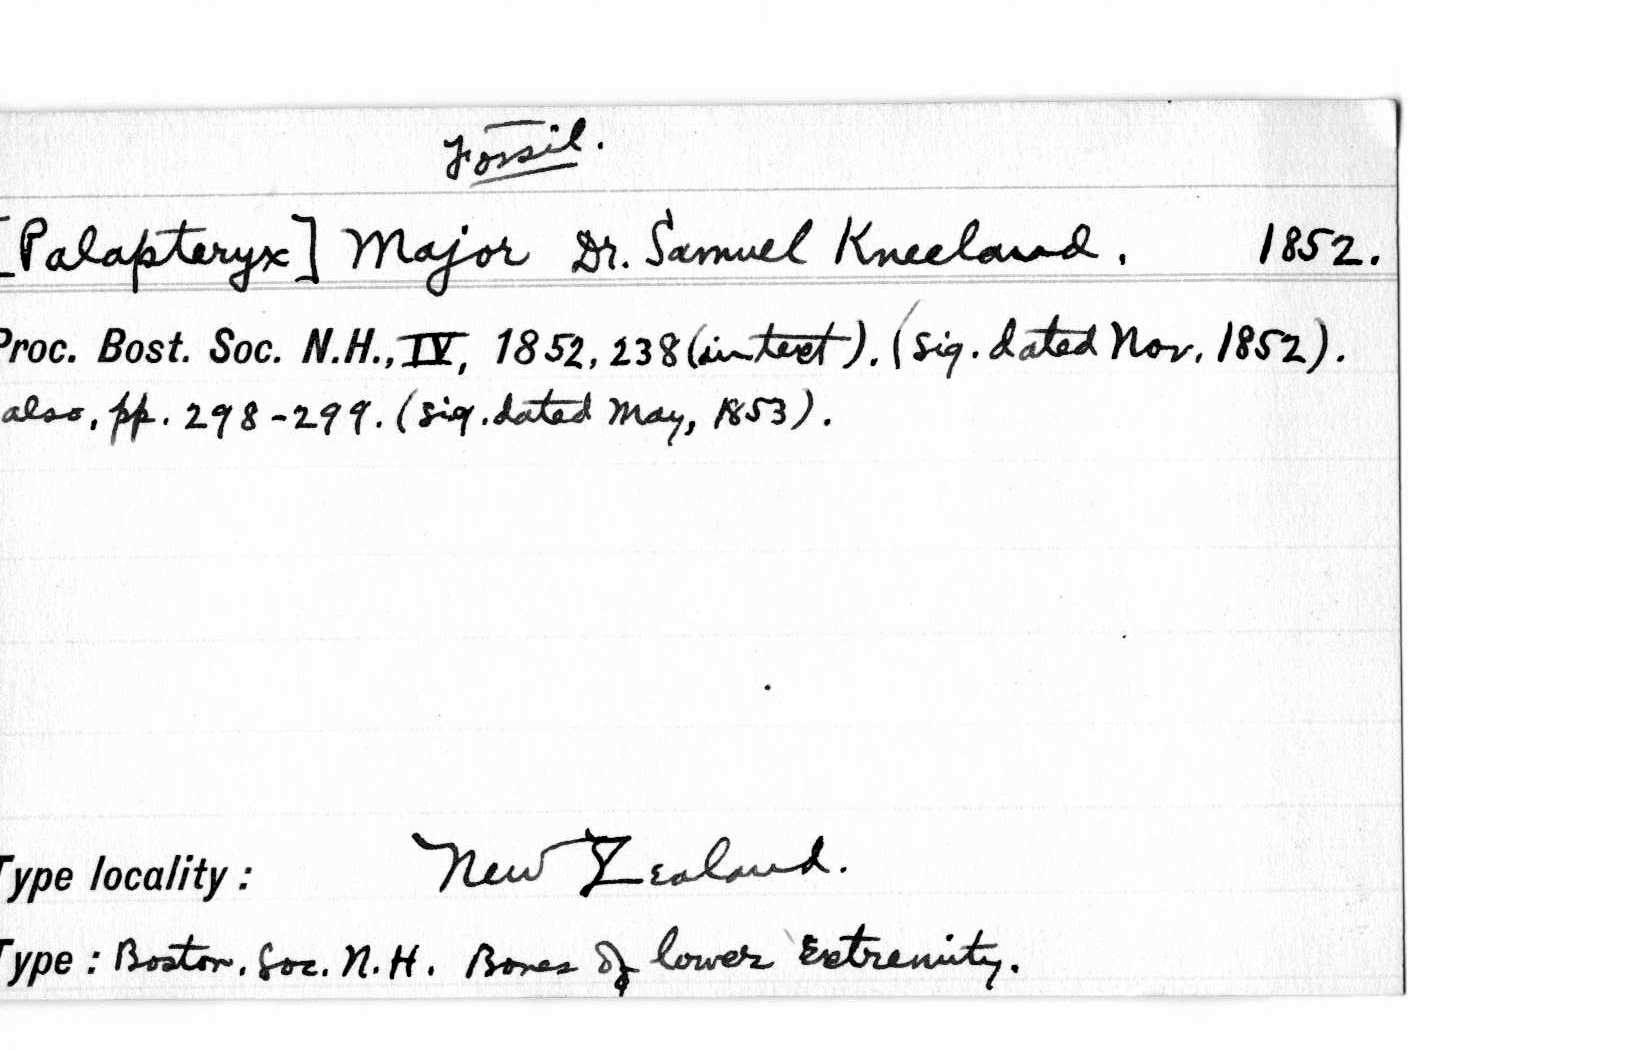 Fossil.
[Palapteryx] Major Dr. Samuel Kneeland. 1852.
Proc. Bost. Soc. N.H., IV, 1852, 238 (in text). (sig. dated Nov. 1852).
also, pp. 298-299. (sig. dated May, 1853).
Type locality: New Zealand.
Type: Boston. Soc. N.H. Bones of lower extremity.